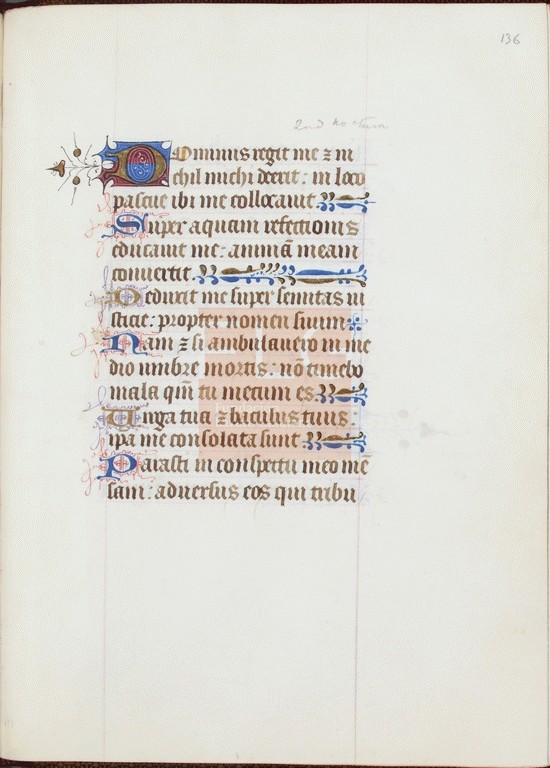 136
2nd Nocturn
Dominus regit me ⁊ ni
chil michi deerit: in loco
pascue ibi me collocauit
Super aquam refectionis
educauit me: animā meam
conuertit.
Deduxit me super semitas iu
sticie: propter nomen suum
Nam ⁊ si ambulauero in me
dio umbre mortis: nō timebo
mala qm̄ tu mecum es
Uirga tua ⁊ baculus tuus
ipa me consolata sunt
Parasti in conspectu meo mē
sam: aduersus eos qui tribu